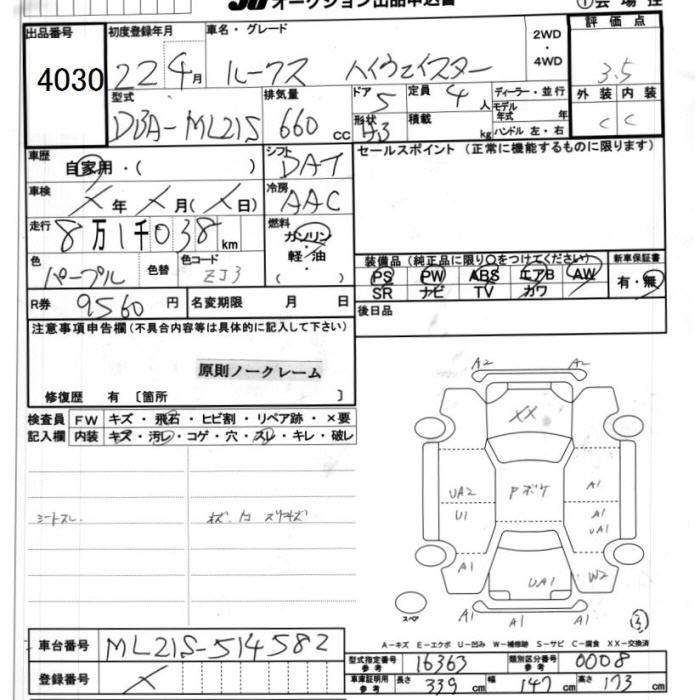 JU オークション出品申込書
①会場控
出品番号
4030
初度登録年月
22 4月
車名・グレード
ルークス ハイウェイスター
2WD
・
4WD
評価点
3.5
外装 内装
C C
型式
DBA-ML21S
排気量
660 cc
ドア
5
形状
H3
定員
4人
積載
kg
ディーラー・並行
モデル年式 年
ハンドル 左・右
車歴
自家用・( )
シフト
DAT
セールスポイント (正常に機能するものに限ります)
車検
× 年 × 月 (× 日)
冷房
AAC
走行
8万1千038km
燃料
ガソリン
・
軽・油
( )
色
パープル
色替
色コード
ZJ3
装備品(純正品に限り○をつけてください)
PS PW ABS エアB AW
SR ナビ TV カワ
新車保証書
有・無
R券 9560円
名変期限 月 日
後日品
注意事項申告欄(不具合内容等は具体的に記入して下さい)
原則ノークレーム
修復歴 有 〔箇所 〕
検査員記入欄
FW キズ・飛石・ヒビ割・リペア跡・×要
内装 キズ・汚レ・コゲ・穴・スレ・キレ・破レ
シートスレ.
A2 A2
XX
UA2
U1
Pボケ
A1
A1
UA1
A1
UA1
W2
A1 A1 A1
スペア
A-キズ E-エクボ U-凹み W-補修跡 S-サビ C-腐食 XX-交換済
車台番号 ML21S-514582
登録番号 ×
型式指定番号 参考 16363
類別区分番号 参考 0008
車庫証明用 参考 長さ 339cm 幅 147cm 高さ 173cm